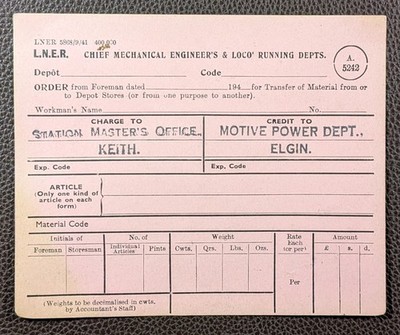 LNER 5868/9/41 400,000
L.N.E.R. CHIEF MECHANICAL ENGINEER'S & LOCO' RUNNING DEPTS.
A.
5242
Depôt Code
ORDER from Foreman dated 194 for Transfer of Material from or
to Depot Stores (or from one purpose to another).
Workman's Name No.
CHARGE TO
STATION MASTER'S OFFICE,
KEITH.
Exp. Code
CREDIT TO
MOTIVE POWER DEPT.,
ELGIN.
Exp. Code
ARTICLE
(Only one kind of
article on each
form)
Material Code
Initials of
Foreman Storesman
No. of
Individual Articles Pints
Cwts. Qrs. Lbs. Ozs.
Rate
Each
(or per)
Per
Amount
£ s. d.
(Weights to be decimalised in cwts.
by Accountant's Staff)